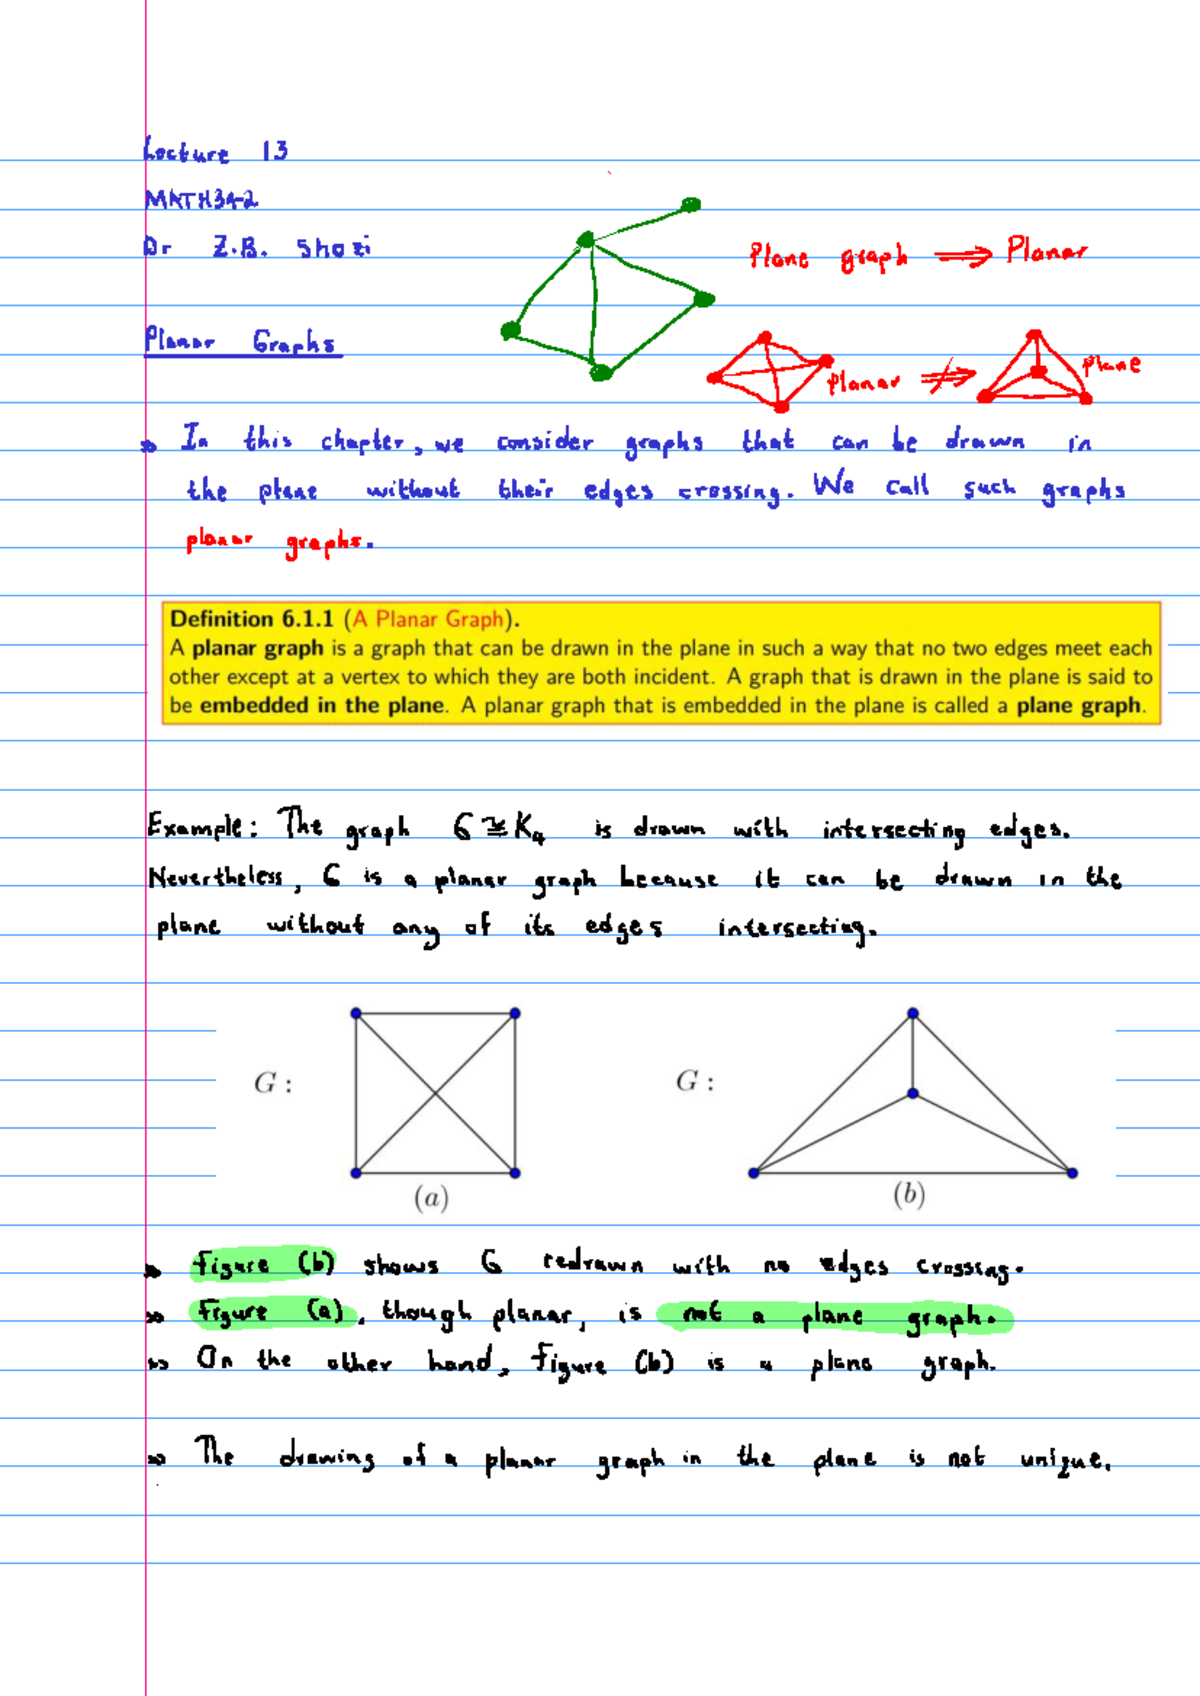 Lecture 13
MATH342
Dr Z.B. Shozi
Plane graph ⟹ Planar
Planar Graphs
Planar ⇏ Plane
» In this chapter, we consider graphs that can be drawn in
the plane without their edges crossing. We call such graphs
planar graphs.
Definition 6.1.1 (A Planar Graph).
A planar graph is a graph that can be drawn in the plane in such a way that no two edges meet each
other except at a vertex to which they are both incident. A graph that is drawn in the plane is said to
be embedded in the plane. A planar graph that is embedded in the plane is called a plane graph.
Example: The graph G ≅ K₄ is drawn with intersecting edges.
Nevertheless, G is a planar graph because it can be drawn in the
plane without any of its edges intersecting.
G : G :
(a) (b)
» Figure (b) shows G redrawn with no edges crossing.
» Figure (a), though planar, is not a plane graph.
» On the other hand, Figure (b) is a plane graph.
» The drawing of a planar graph in the plane is not unique.